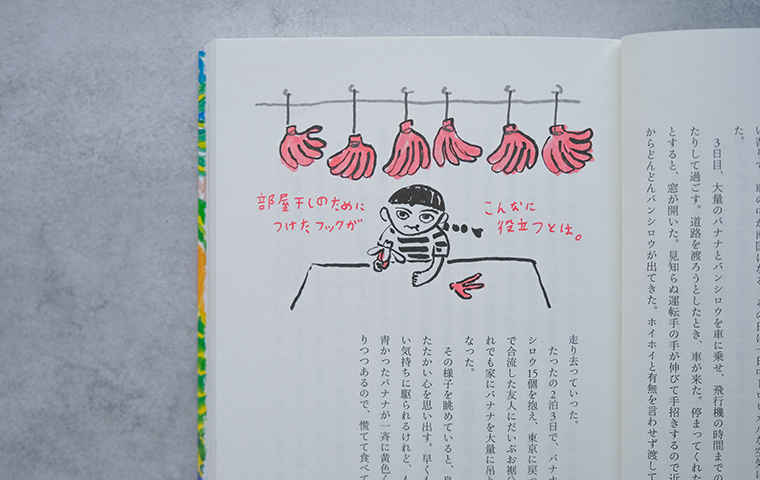 た。
3日目、大量のバナナとバンシロウを車に乗せ、飛行機の時間までの
たりして過ごす。道路を渡ろうとしたとき、車が来た。停まってくれた
とすると、窓が開いた。見知らぬ運転手の手が伸びて手招きするので近
からどんどんバンシロウが出てきた。ホイホイと有無を言わせず渡して
部屋干しのために
つけたフックが
こんなに
役立つとは。
走り去っていった。
たったの2泊3日で、バナナ
シロウ15個を抱え、東京に戻っ
で合流した友人にだいぶお裾分
れでも家にバナナを大量に吊り
なった。
その様子を眺めていると、
たたかい心を思い出す。早くも
い気持ちに駆られるけれど、
青かったバナナが一斉に黄色く
りつつあるので、慌てて食べて